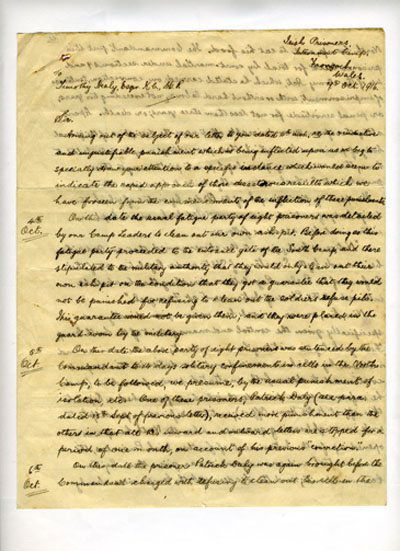 Irish Prisoners,
Internment Camp,
Frongoch
Wales.
9th Oct. 1916.
To
Timothy Healy, Esqr. K.C., M.P.
Sir,
Arising out of the subject of our letter to you dated inst, re the vindictive
and unjustifiable punishment which is being inflicted upon us we beg to
specially draw your attention to a specific instance which would seem to
indicate the rapid approach of those results which we
have foreseen from the of the infliction of these punishments.
4th Oct.
On this date the usual fatigue party of eight prisoners was detailed
by our Camp Leaders to clean out our own ash pit. Before doing so this
fatigue party proceeded to the entrance gate of the South Camp and there
stipulated to the military authority that they would only clean out their
own ash pit on the condition that they got a guarantee that they would
not be punished for refusing to clean out the soldiers refuse pits.
This guarantee would not be given them, and they were placed in the
guard-room by the military.
5th Oct
On this date the above party of eight prisoners was sentenced by the
Commandant to days solitary confinement in cells in the North
Camp, to be followed, we presume, by the usual punishment of
isolation, etc. One of these prisoners, Patrick Daly (see para.
dated Sept of previous letter), received more punishment than the
others in that all his inward and outward letters are stopped for a
period of one month, on account of his previous "conviction".
6th Oct.
On this date the prisoner Patrick Daly was again brought before the
Commandant charged with refusing to clean out the cell in the